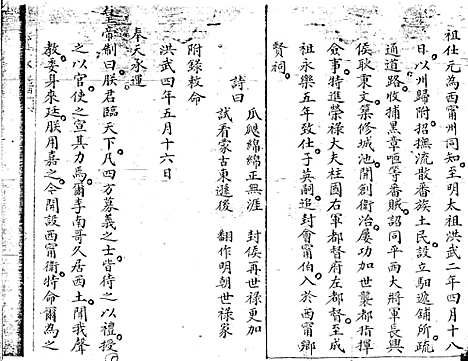 祖仕元為西甯州同知至明太祖洪武二年四月十八
日以州歸附招撫流散番族土民設立馹遞鋪所疏
通道路收捕黑章咂等番賊詔同平西大將軍長興
侯耿東文築修城池開創衛治屢功加世襲都指揮
僉事特進榮祿大夫柱國右軍都督府左都督至成
祖永樂五年致仕子英嗣追封會甯伯入於西甯鄉
賢祠
詩曰
瓜瓞綿綿正無涯 封侯再世祿更加
試看蒙古東遯後 翻作明朝世祿家
附錄敕命
洪武四年五月十六日
奉天承運
皇帝制曰朕君臨天下凡四方慕義之士皆待之以禮授
之以官使之宣其力焉爾李南哥久居西土聞我聲
教委身來廷朕用嘉之今開設西甯衛特命爾為之